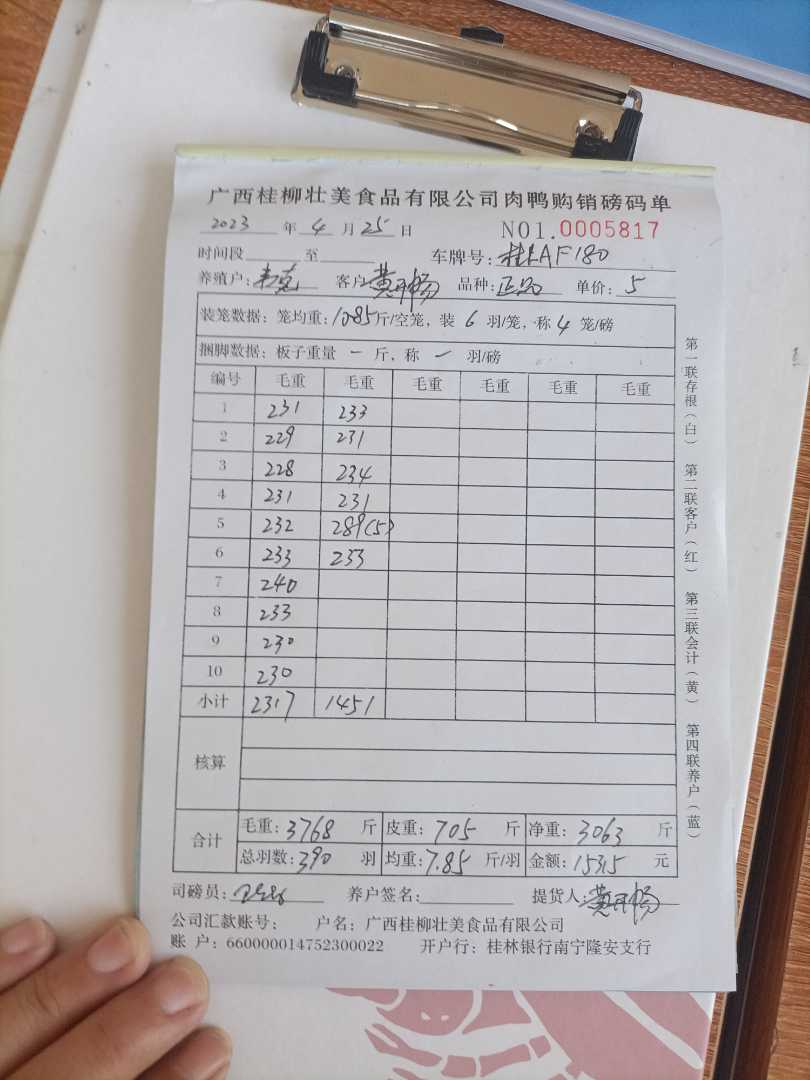 广西桂柳壮美食品有限公司肉鸭购销磅码单
2023 年 4 月 25 日 NO1.0005817
时间段 至 车牌号: AF180
养殖户: 客户 黄开畅 品种: 正品 单价: 5
装笼数据: 笼均重: 10.85 斤/空笼, 装 6 羽/笼, 称 4 笼/磅
捆脚数据: 板子重量 一 斤, 称 一 羽/磅
编号 毛重 毛重 毛重 毛重 毛重 毛重
1 231 233
2 229 231
3 228 234
4 231 231
5 232 289(5)
6 233 233
7 240
8 233
9 230
10 230
小计 2317 1451
核算
合计 毛重: 3768 斤 皮重: 705 斤 净重: 3063 斤
总羽数: 390 羽 均重: 7.85 斤/羽 金额: 15315 元
司磅员: 养户签名: 提货人: 黄开畅
公司汇款账号: 户名: 广西桂柳壮美食品有限公司
账 户: 660000014752300022 开户行: 桂林银行南宁隆安支行
第一联存根(白) 第二联客户(红) 第三联会计(黄) 第四联养户(蓝)